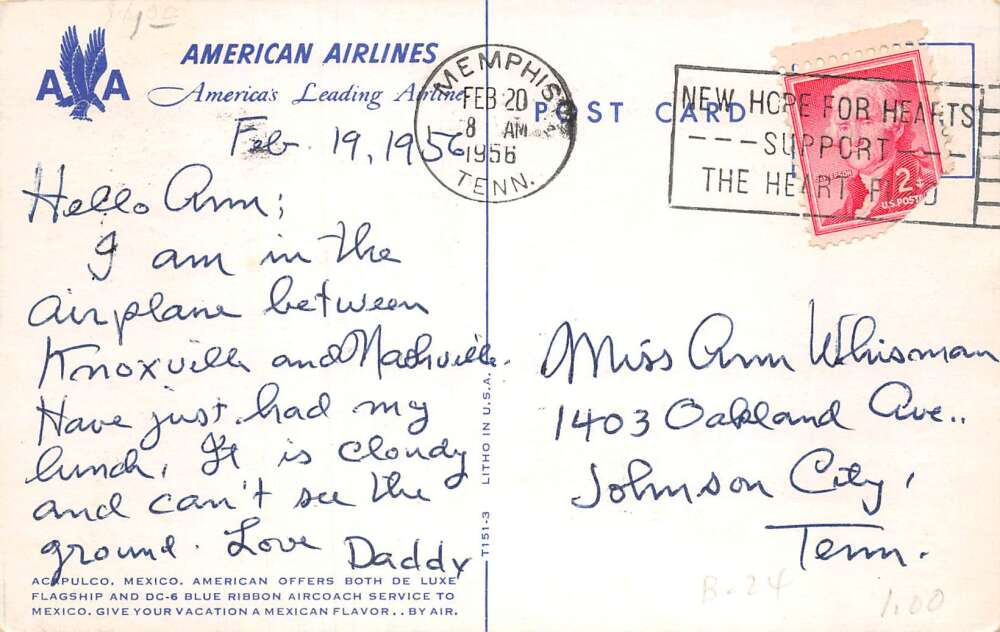 AMERICAN AIRLINES
A A
America's Leading Airline
Feb. 19, 1956
Hello Ann;
I am in the
airplane between
Knoxville and Nashville.
Have just had my
lunch. It is cloudy
and can't see the
ground. Love Daddy
ACAPULCO, MEXICO. AMERICAN OFFERS BOTH DE LUXE
FLAGSHIP AND DC-6 BLUE RIBBON AIRCOACH SERVICE TO
MEXICO. GIVE YOUR VACATION A MEXICAN FLAVOR . . BY AIR.
T151-3 LITHO IN U.S.A.
MEMPHIS
FEB 20
8 AM
1956
TENN.
POST CARD
NEW HOPE FOR HEARTS
---SUPPORT---
THE HEART FUND
2¢
U.S. POST
Miss Ann Whisman
1403 Oakland Ave..
Johnson City,
Tenn.
B-24
1.00